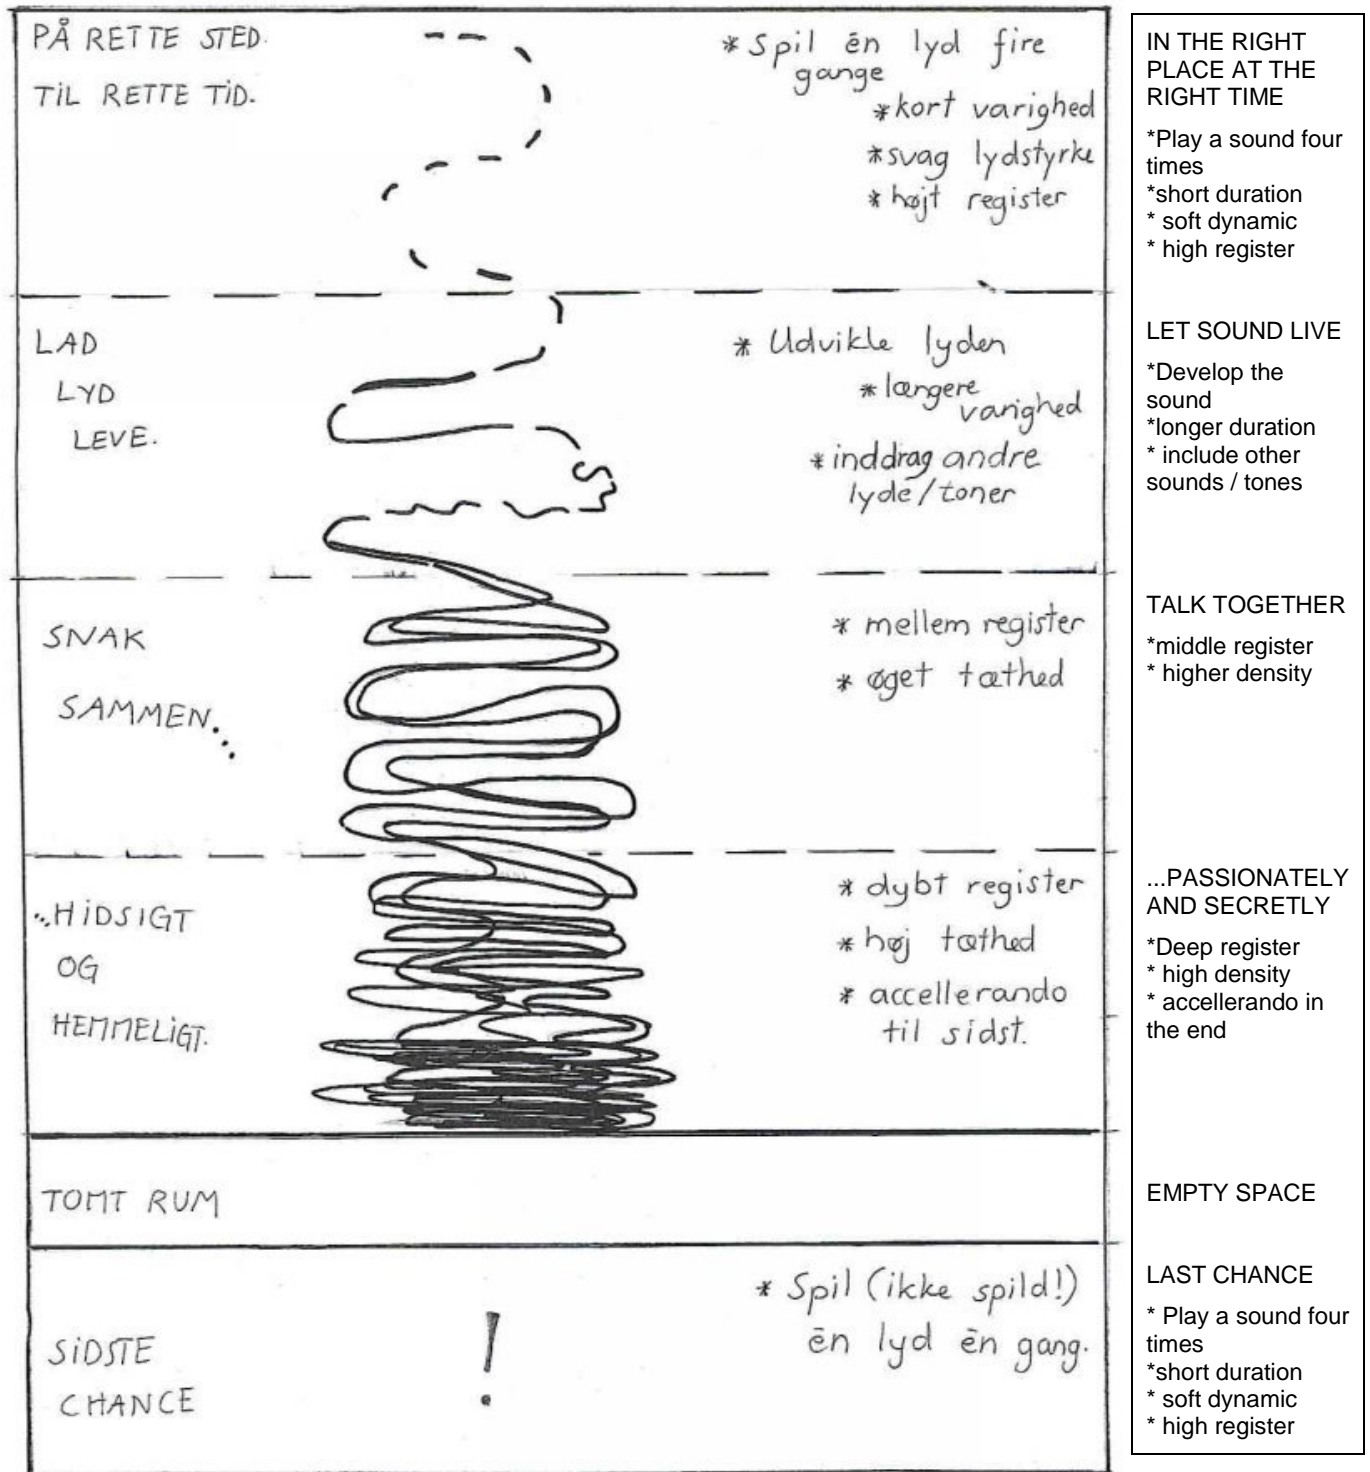 PÅ RETTE STED.
TiL RETTE TiD.
* Spil én lyd fire
gange
* kort varighed
* svag lydstyrke
* højt register
LAD
LYD
LEVE.
* Udvikle lyden
* længere
varighed
* inddrag andre
lyde/toner
SNAK
SAMMEN....
* mellem register
* øget tæthed
...HiDSIGT
OG
HEMMELiGT.
* dybt register
* høj tæthed
* accellerando
til sidst.
TOMT RUM
SiDSTE
CHANCE
!
* Spil (ikke spild!)
én lyd én gang.
IN THE RIGHT
PLACE AT THE
RIGHT TIME
*Play a sound four
times
*short duration
* soft dynamic
* high register
LET SOUND LIVE
*Develop the
sound
*longer duration
* include other
sounds / tones
TALK TOGETHER
*middle register
* higher density
...PASSIONATELY
AND SECRETLY
*Deep register
* high density
* accellerando in
the end
EMPTY SPACE
LAST CHANCE
* Play a sound four
times
*short duration
* soft dynamic
* high register